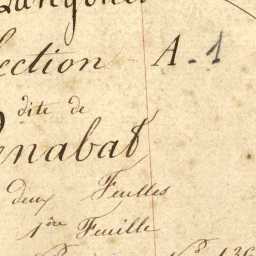 Section A. 1
dite de
Penabat
deux Feuilles
1ère Feuille